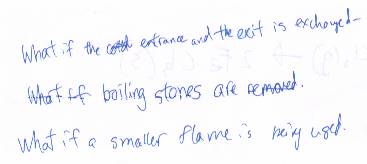 What if the entrance and the exit is exchanged
What if boiling stones are removed.
What if a smaller flame is being used.